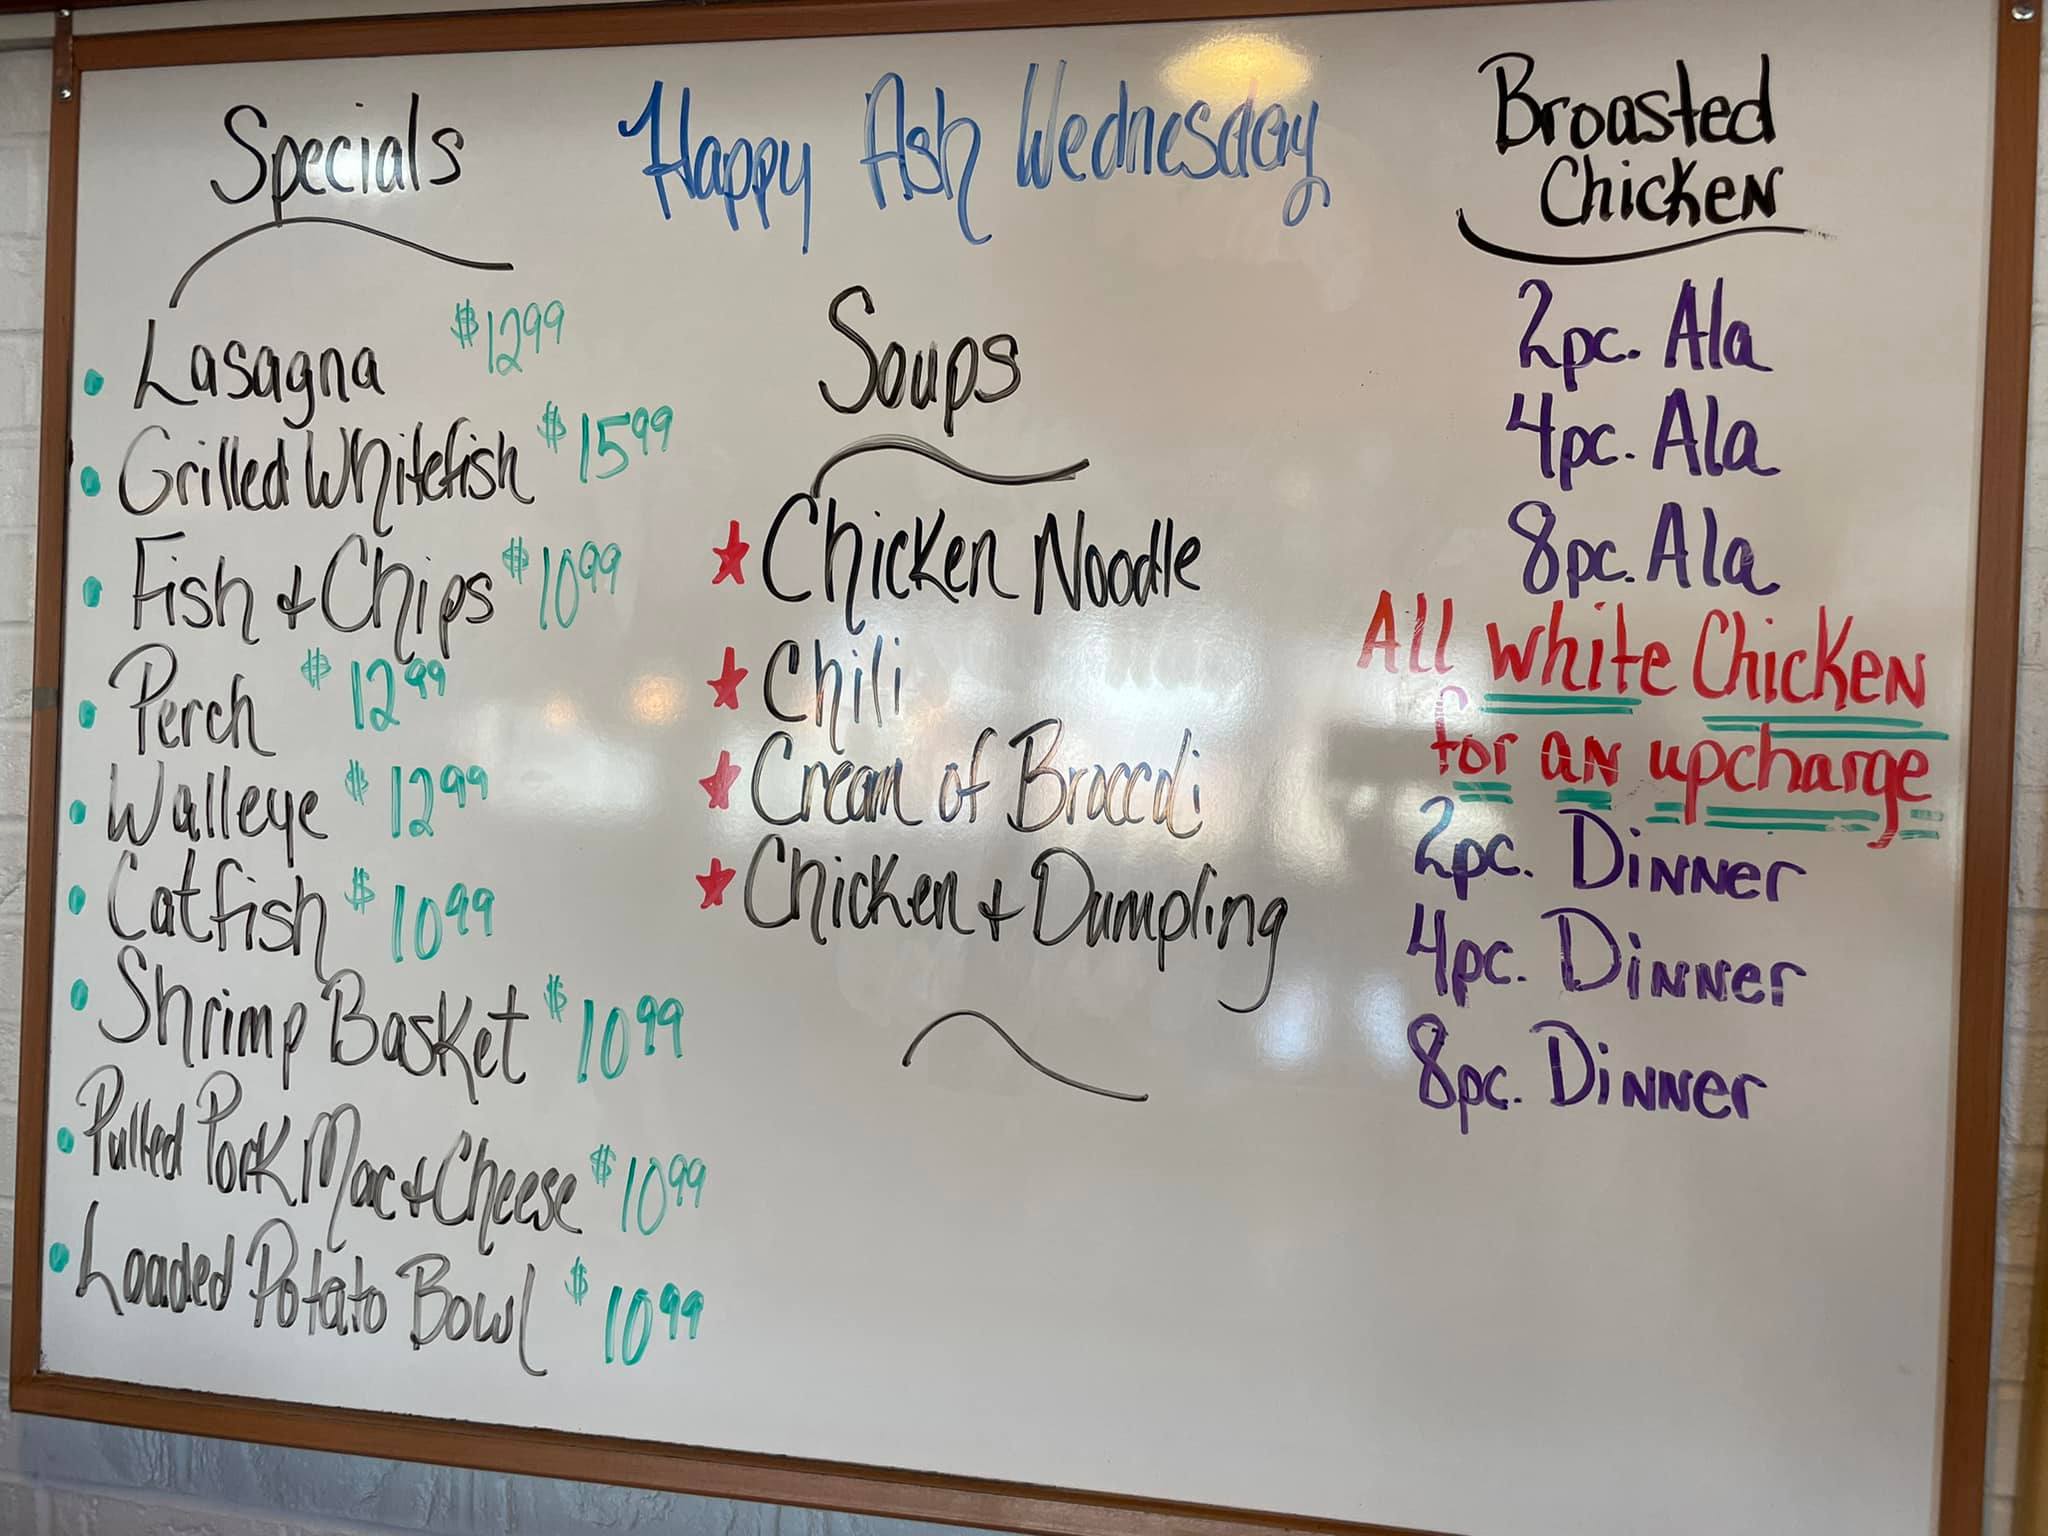 Happy Ash Wednesday
Specials
Lasagna $12.99
Grilled Whitefish $15.99
Fish + Chips $10.99
Perch $12.99
Walleye $12.99
Catfish $10.99
Shrimp Basket $10.99
Pulled Pork Mac + Cheese $10.99
Loaded Potato Bowl $10.99
Soups
Chicken Noodle
Chili
Cream of Broccoli
Chicken + Dumpling
Broasted
Chicken
2pc. Ala
4pc. Ala
8pc. Ala
All white Chicken
for an upcharge
2pc. Dinner
4pc. Dinner
8pc. Dinner